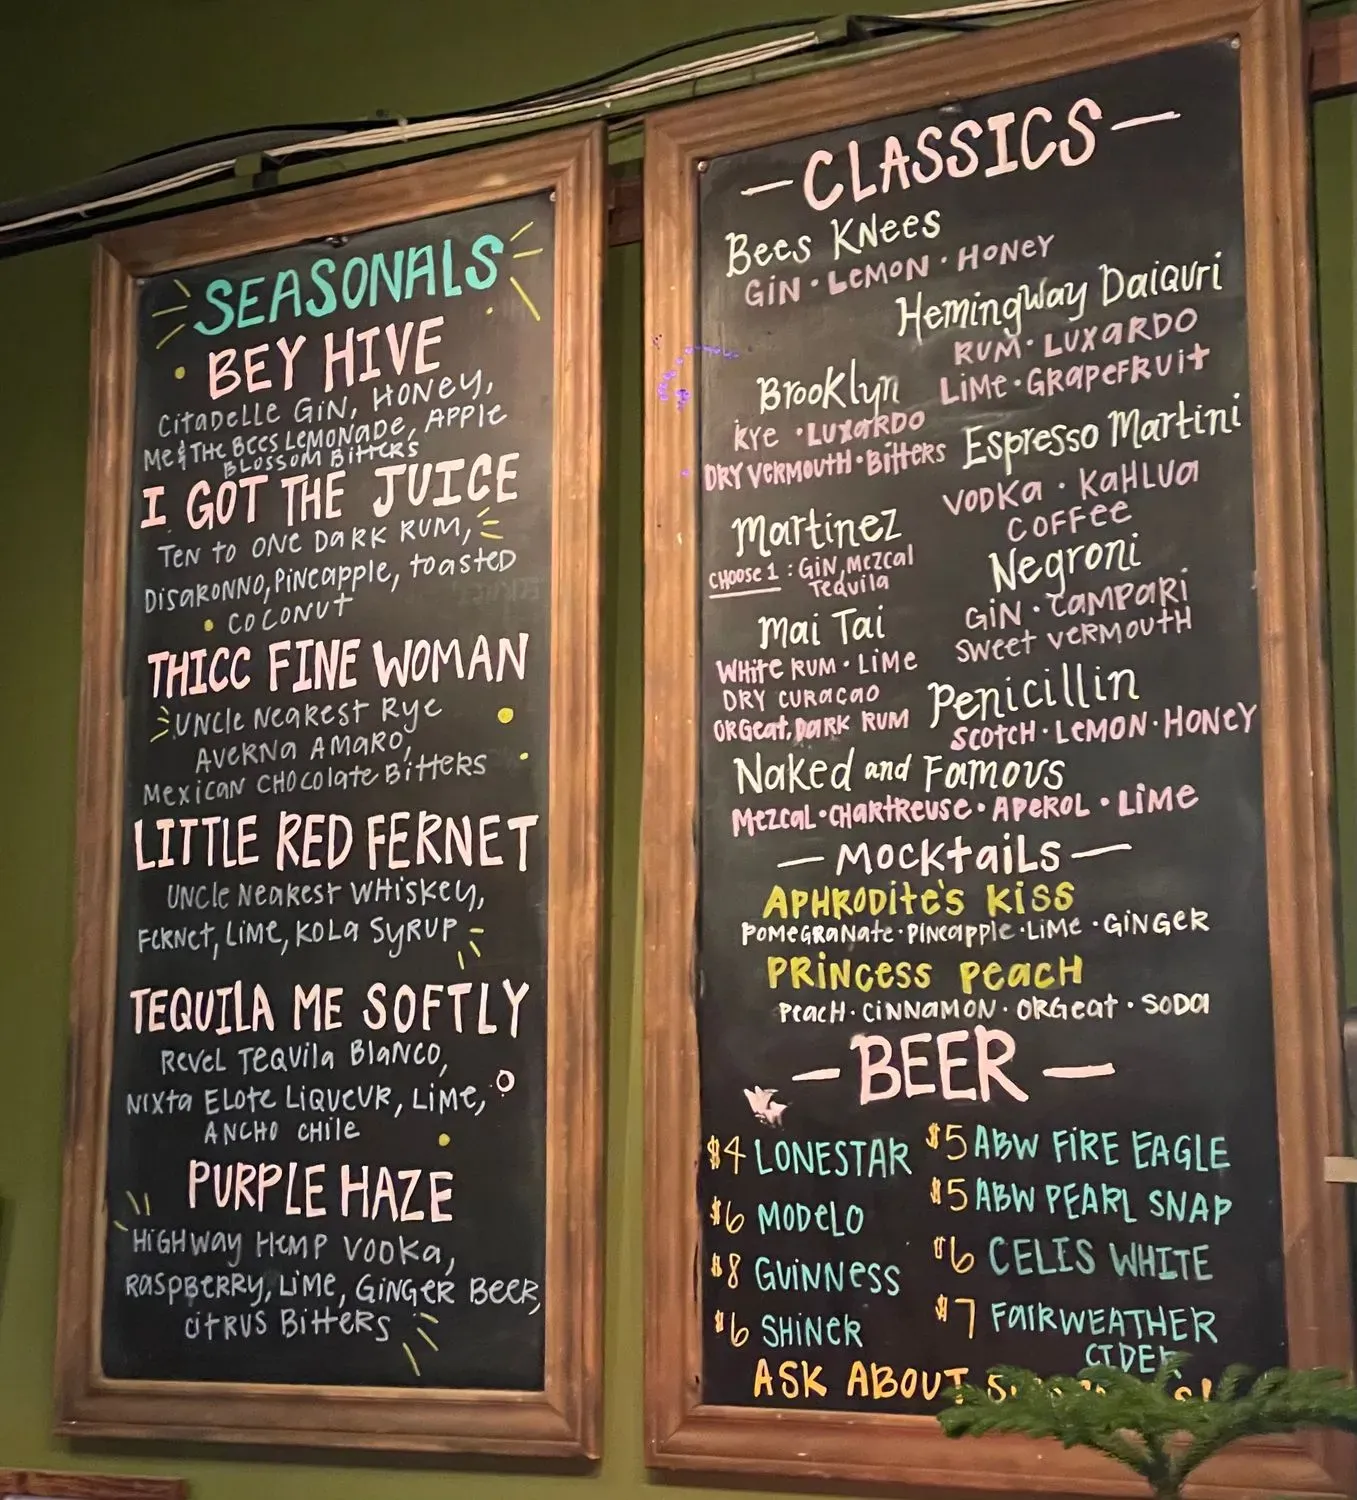 SEASONALS
BEY HIVE
CITADELLE GIN, HONEY,
ME & THE BEES LEMONADE, APPLE
BLOSSOM BITTERS
I GOT THE JUICE
TEN TO ONE DARK RUM,
DISARONNO, PINEAPPLE, TOASTED
COCONUT
THICC FINE WOMAN
UNCLE NEAREST RYE
AVERNA AMARO,
MEXICAN CHOCOLATE BITTERS
LITTLE RED FERNET
UNCLE NEAREST WHISKEY,
FERNET, LIME, KOLA SYRUP
TEQUILA ME SOFTLY
REVEL TEQUILA BLANCO,
NIXTA ELOTE LIQUEUR, LIME,
ANCHO CHILE
PURPLE HAZE
HIGHWAY HEMP VODKA,
RASPBERRY, LIME, GINGER BEER,
CITRUS BITTERS
— CLASSICS —
Bees Knees
GIN · LEMON · HONEY
Hemingway Daiquri
RUM · LUXARDO
LIME · GRAPEFRUIT
Brooklyn
RYE · LUXARDO
DRY VERMOUTH · BITTERS
Espresso Martini
VODKA · KAHLUA
COFFEE
Martinez
CHOOSE 1 : GIN, MEZCAL
TEQUILA
Negroni
GIN · CAMPARI
SWEET VERMOUTH
Mai Tai
WHITE RUM · LIME
DRY CURACAO
ORGEAT, DARK RUM
Penicillin
SCOTCH · LEMON · HONEY
Naked and Famous
MEZCAL · CHARTREUSE · APEROL · LIME
— MOCKTAILS —
APHRODITE'S KISS
POMEGRANATE · PINEAPPLE · LIME · GINGER
PRINCESS PEACH
PEACH · CINNAMON · ORGEAT · SODA
— BEER —
$4 LONESTAR
$6 MODELO
$8 GUINNESS
$6 SHINER
$5 ABW FIRE EAGLE
$5 ABW PEARL SNAP
$6 CELIS WHITE
$7 FAIRWEATHER
CIDER
ASK ABOUT